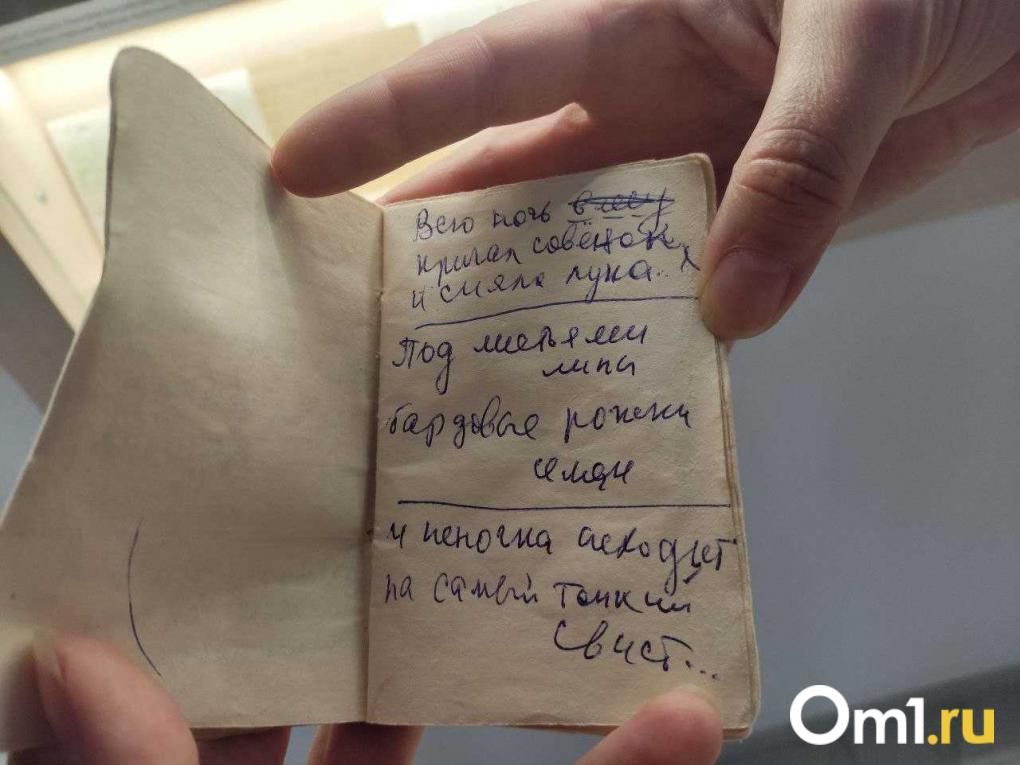 Всю ночь в лесу
кричал совёнок
и сияла луна..
Под листьями
липы
бардовые рожки
семян
и пеночка исходит
на самый тонкий
свист...
Om1.ru